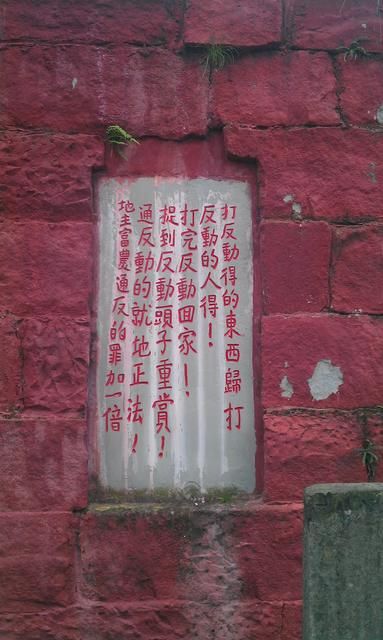 打反動得的東西歸打
反動的人得！
打完反動回家！、
捉到反動頭子重賞！
通反動的就地正法！
地主富農通反的罪加一倍